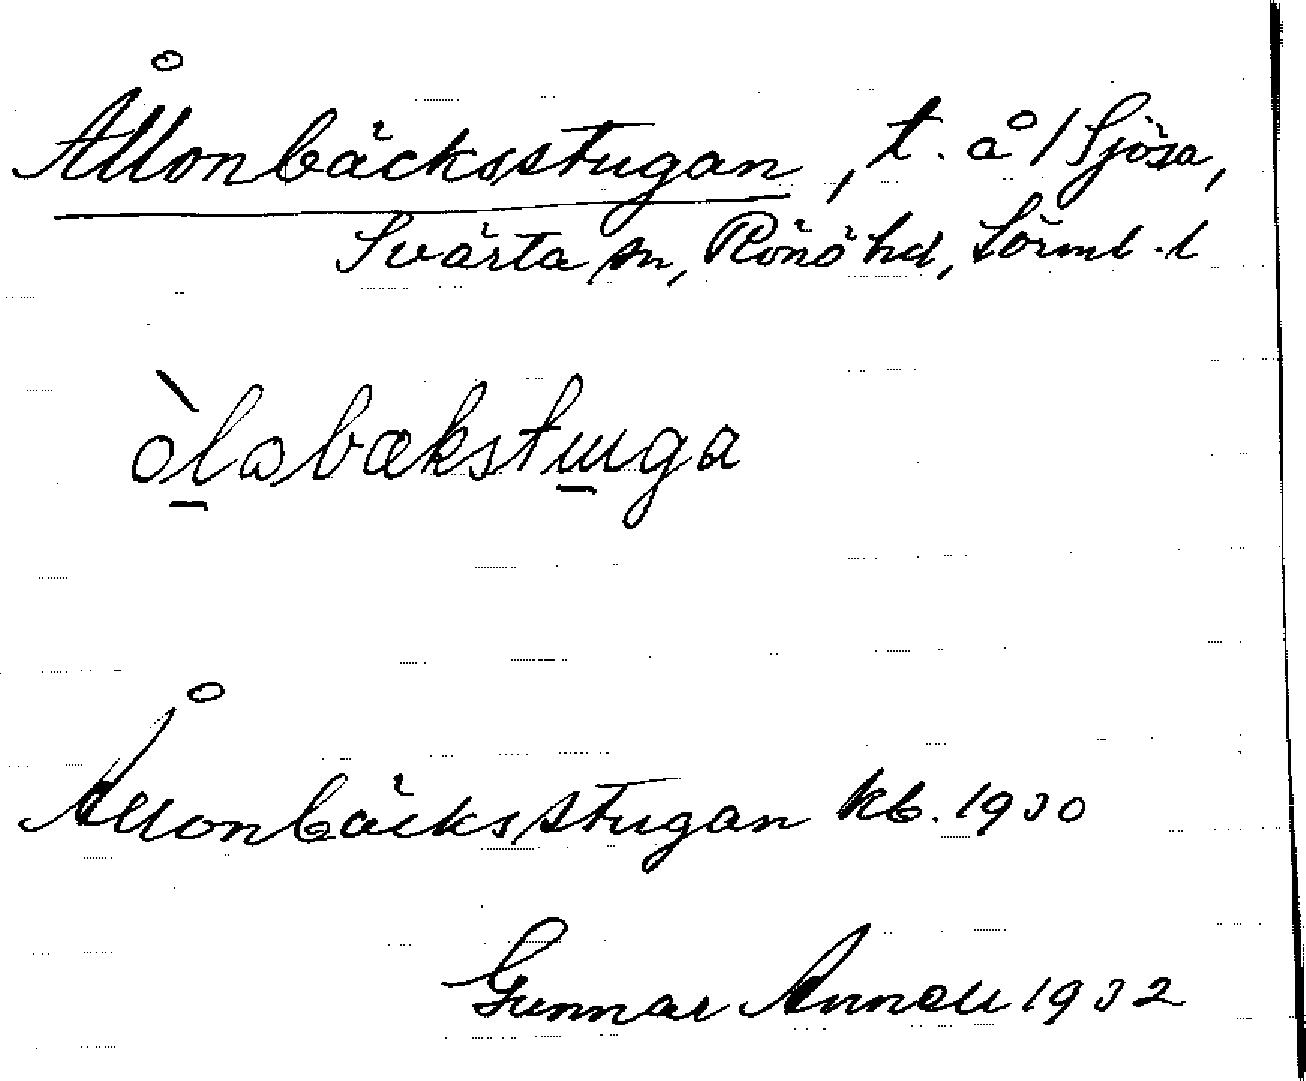 Ållonbäcksstugan, t. å / Sjösa,
Svärta sn, Rönö hd, Sörml. l
òlabækstuga
Ållonbäcksstugan kb. 1930
Gunnar Annell 1932